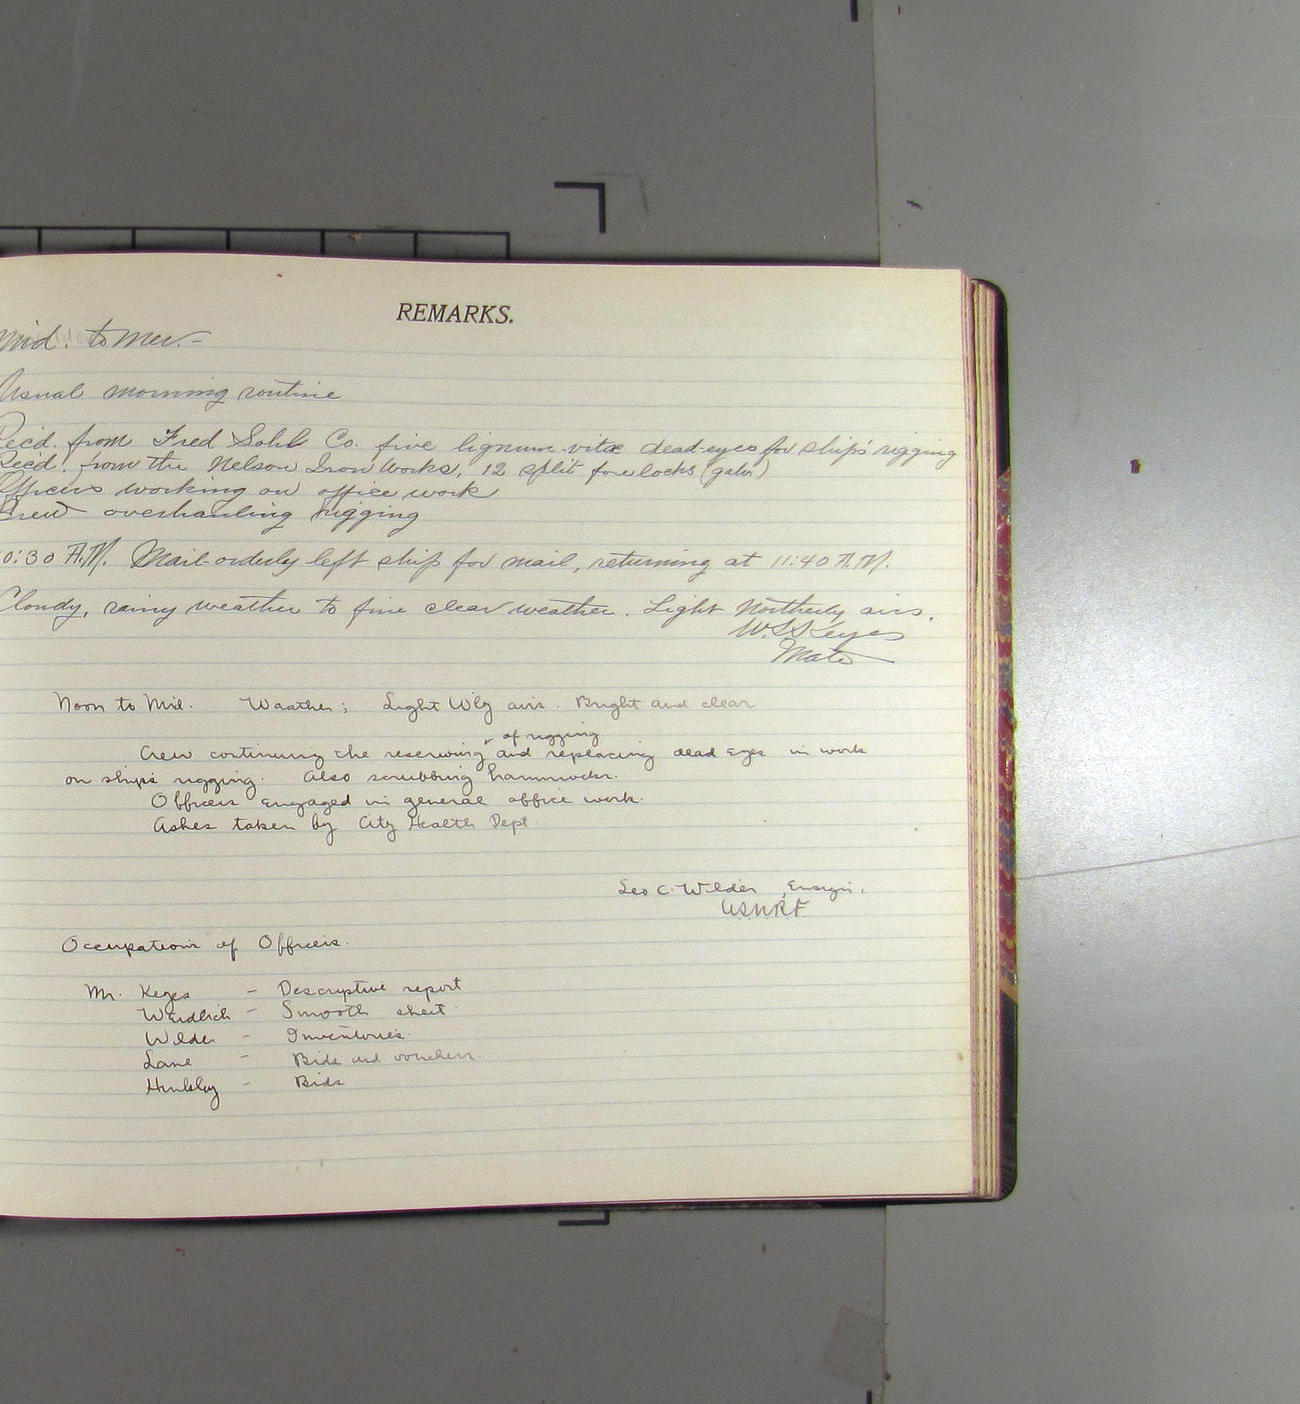 REMARKS.
Mid. to Mer.-
Usual morning routine
Rec'd. from Fred Sohl Co. five lignum-vitæ dead-eyes for ship's rigging
Rec'd. from the Nelson Iron Works, 12 split forelocks (galv)
Officers working on office work
Crew overhauling rigging
10:30 A.M. Mail-orderly left ship for mail, returning at 11:40 A.M.
Cloudy, rainy weather to fine clear weather. Light Northerly airs.
W.S.Keyes
Mate
Noon to Mid. Weather; Light W'ly airs. Bright and clear
of rigging
Crew continuing the reserving and replacing dead eyes in work
on ships rigging. Also scrubbing hammocks.
Officers engaged in general office work.
Ashes taken by City Health Dept
Leo C. Wilder, Ensign,
USNRF
Occupations of Officers.
Mr. Keyes - Descriptive report
Weidlich - Smooth sheet
Wilder - Inventories.
Lane - Bids and vouchers.
Hinkley - Bids